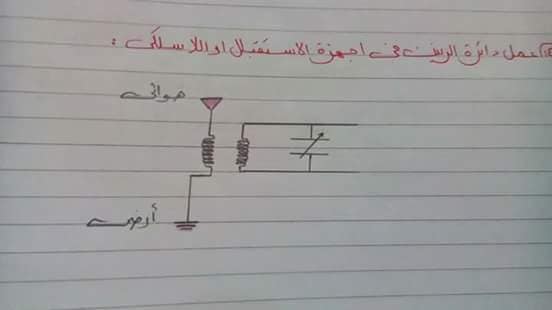 عمل دائرة الرنين فى أجهزة الاستقبال اواللاسلكى :
هوائى
أرضى